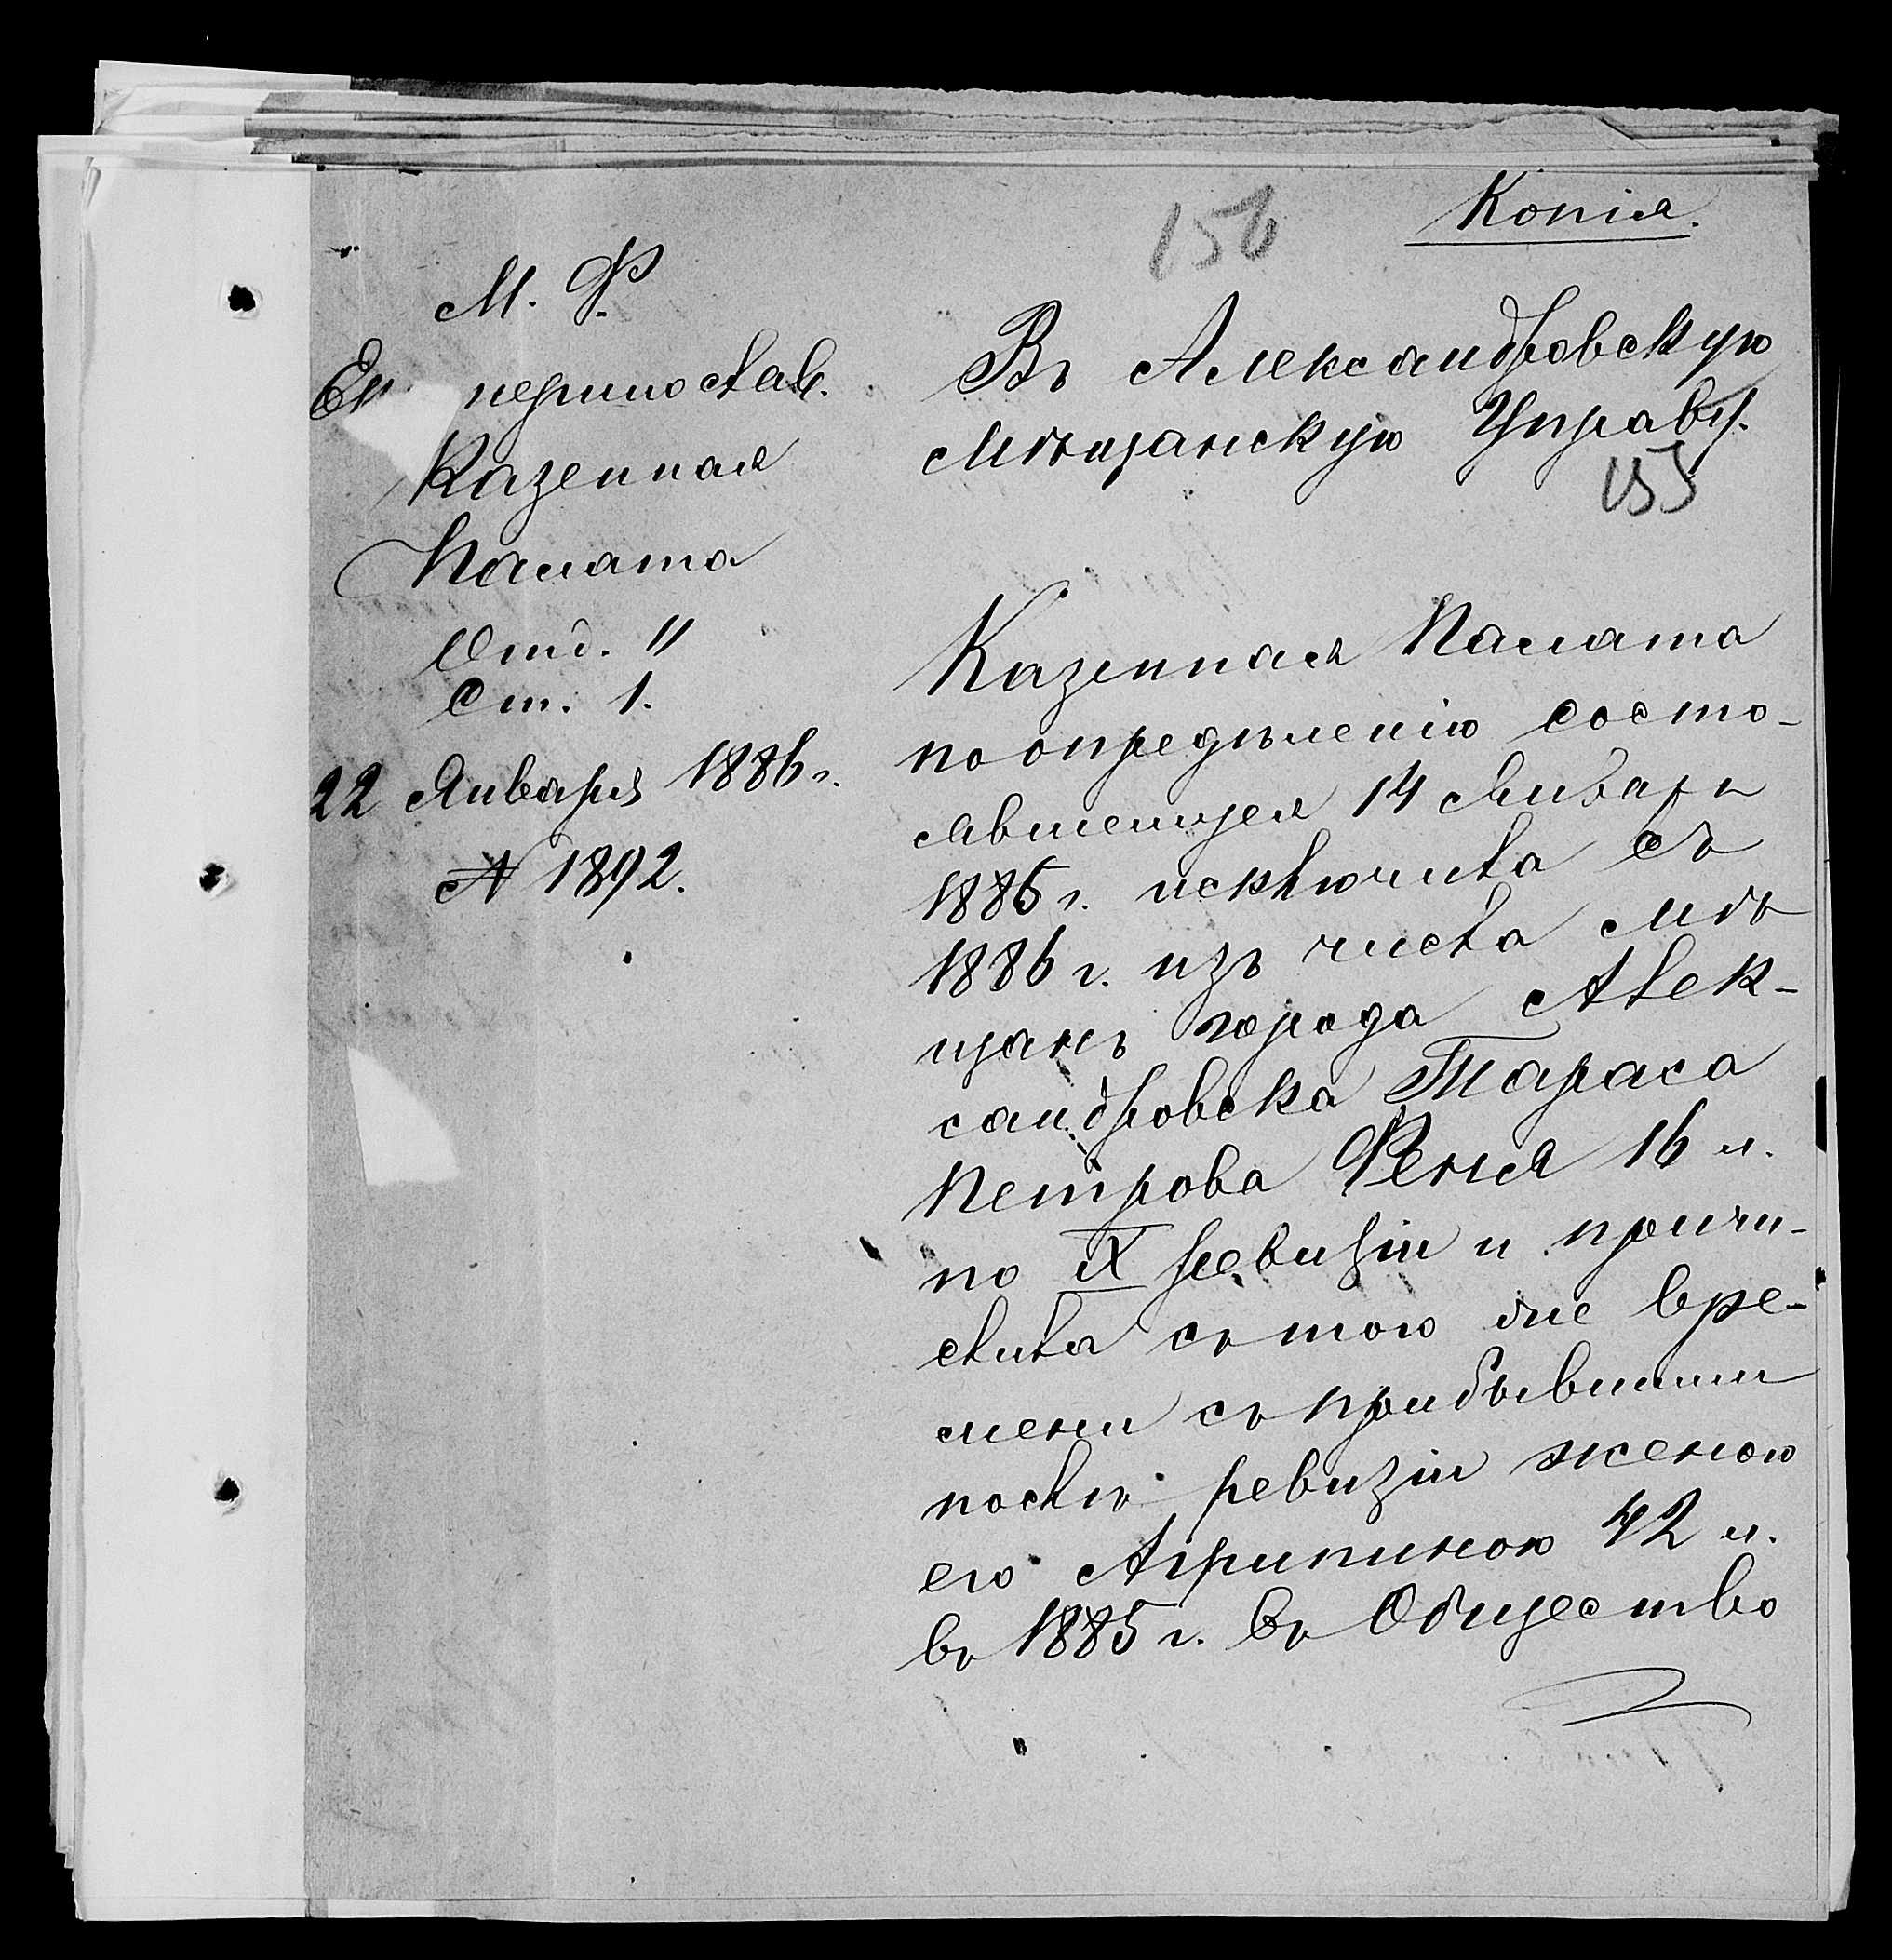 Копія.
156
М. Ф.
Ек теринослав.
Казенная
Палата
Отд. "
Ст. 1.
22 Января 1886 г.
№ 1892.
Въ Александровскую
Мѣщанскую Управу.
155
Казенная Палата
по опредѣленію состо-
явшемуся 14 Января
1886 г. исключила съ
1886 г. изъ числа мѣ
щанъ города Алек-
сандровска Тараса
Петрова Феня 16 л.
по IX ревизіи и причи-
слила съ того же вре-
мени съ прибывшими
послѣ ревизіи женою
его Агрипиною 42 л.
въ 1885 г. въ Общество